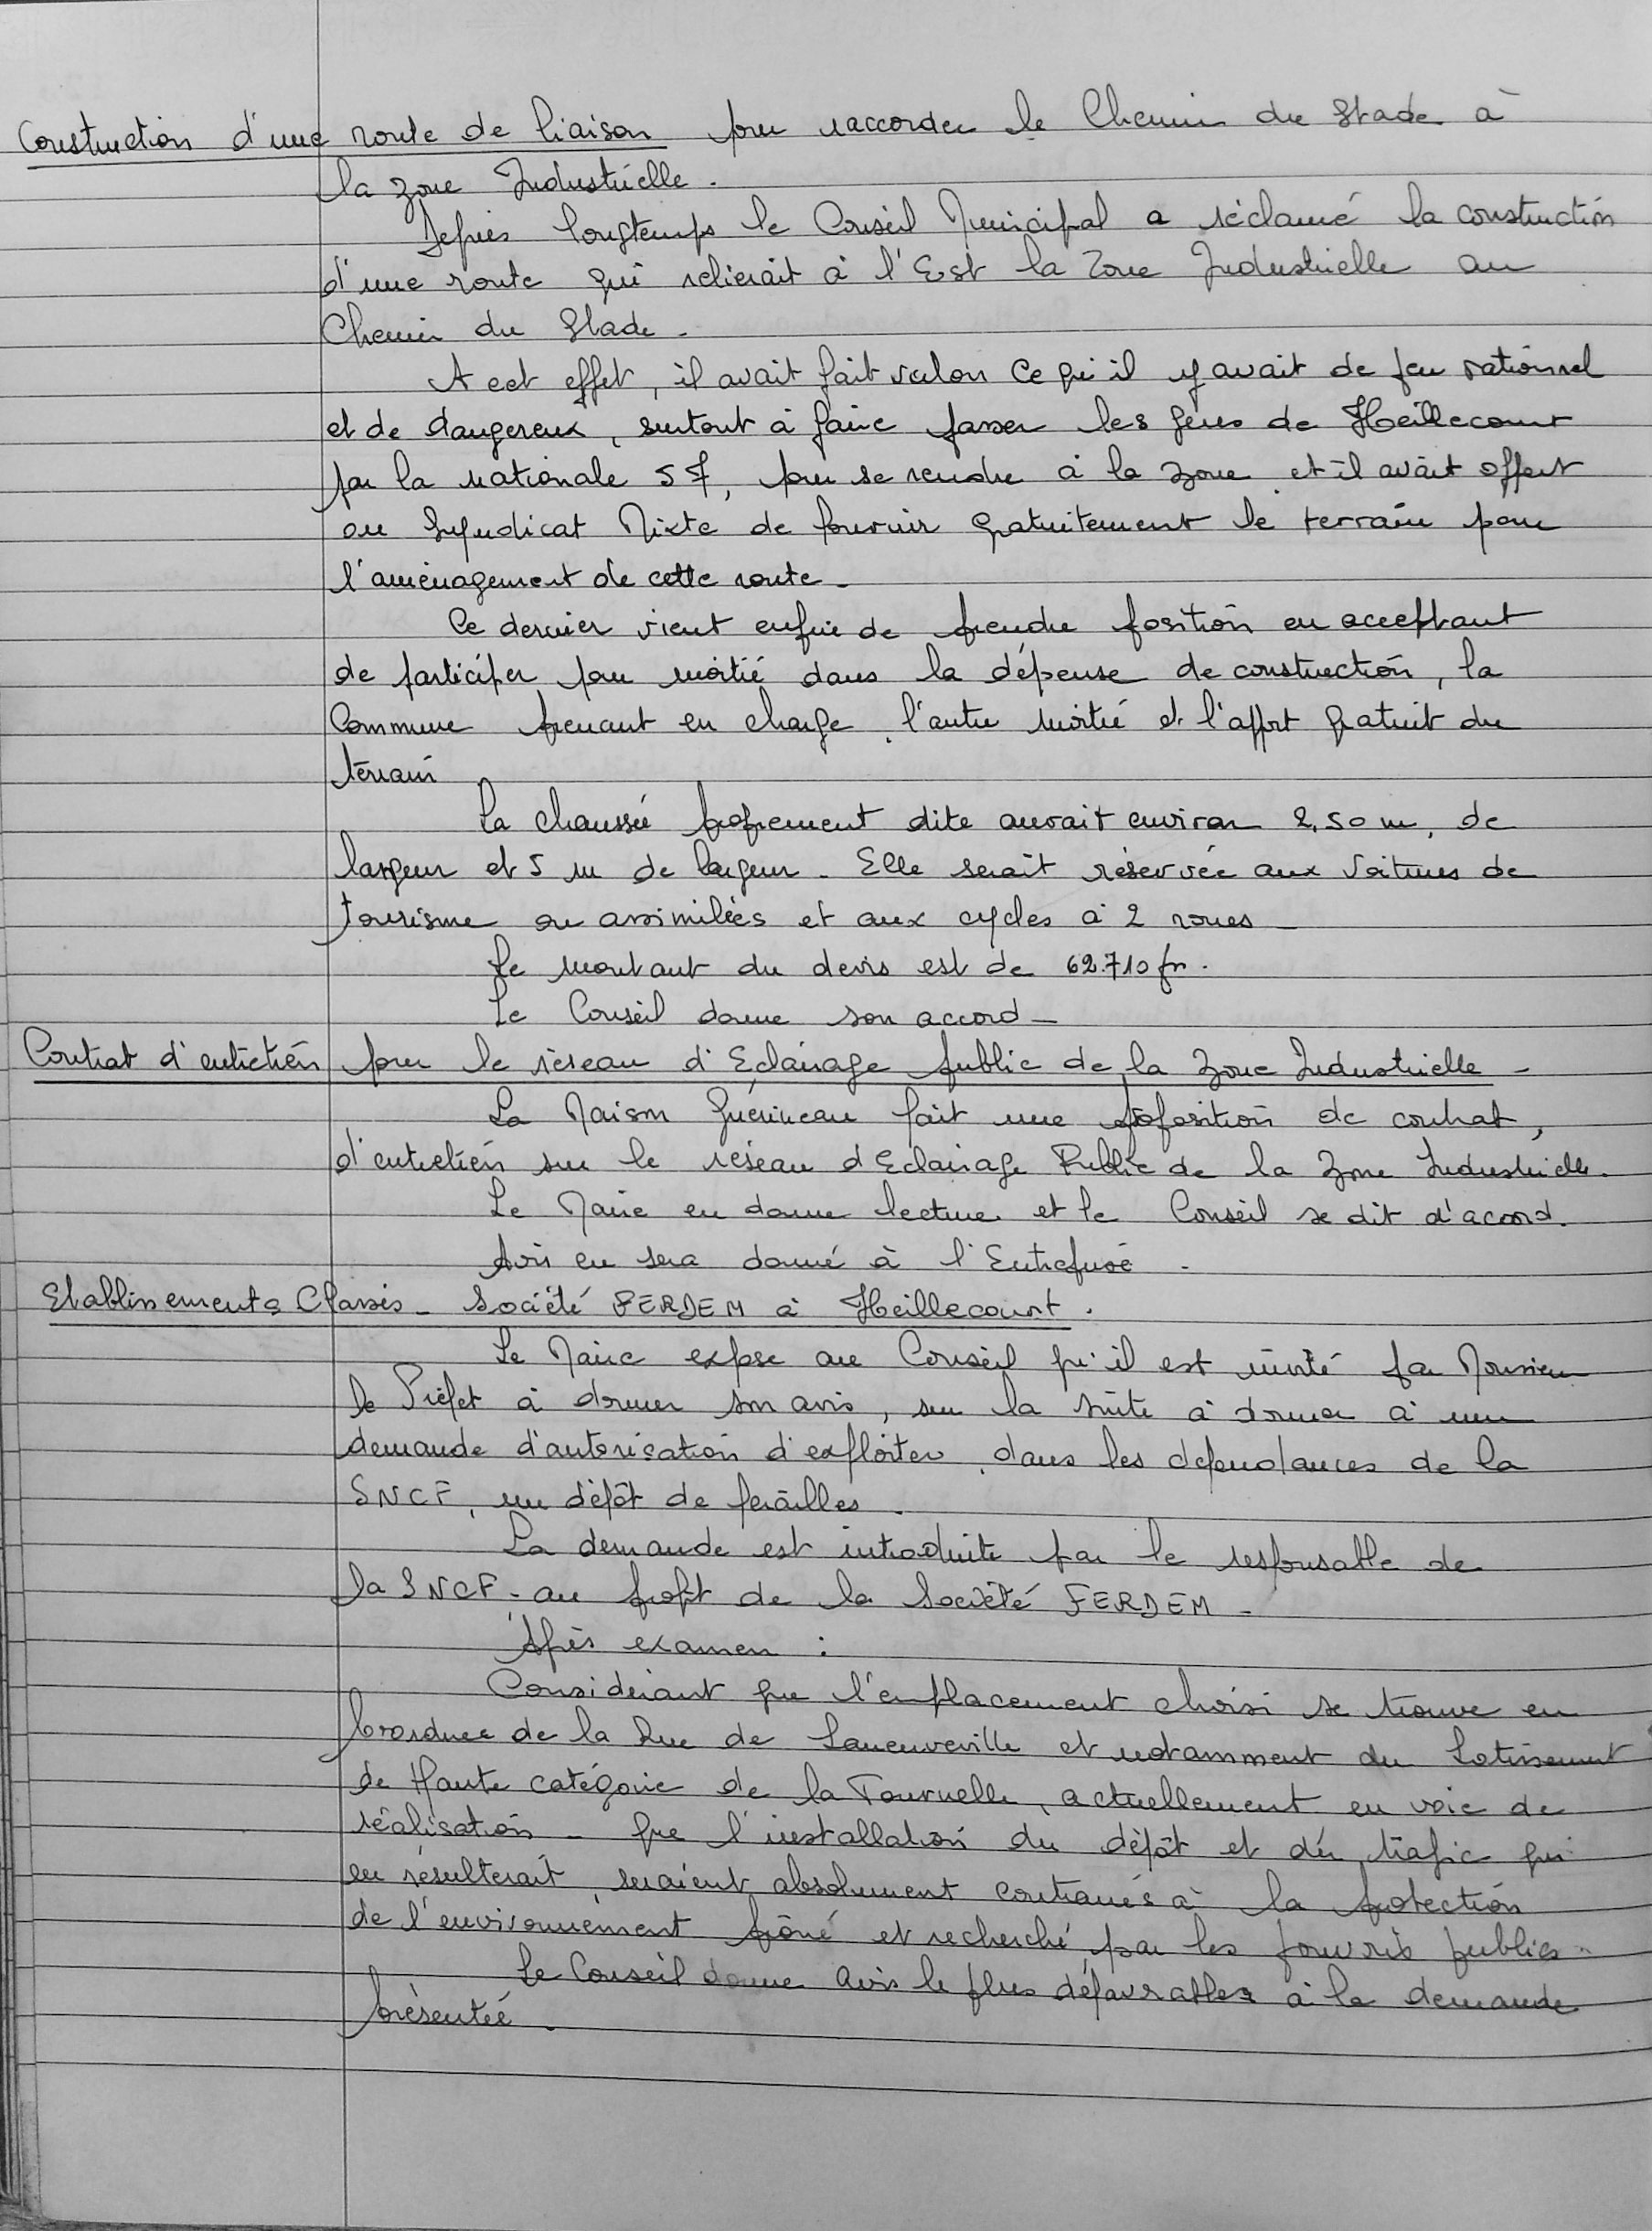 Construction d'une route de liaison pour raccorder le Chemin du Stade à
la zone Industrielle.
Depuis longtemps le Conseil Municipal a réclamé la construction
d'une route qui relierait à l'Est la Zone Industrielle au
Chemin du Stade -
A cet effet, il avait fait valoir ce qu'il y avait de peu rationnel
et de dangereux, surtout à faire passer les gens de Heillecourt
par la nationale 57, pour se rendre à la zone et il avait offert
au Syndicat Mixte de fournir gratuitement le terrain pour
l'aménagement de cette route -
Ce dernier vient enfin de prendre position en acceptant
de participer pour moitié dans la dépense de construction, la
Commune prenant en charge l'autre moitié et l'apport gratuit du
terrain
La chaussée proprement dite aurait environ 2,50 m, de
largeur et 5 m de largeur - Elle serait réservée aux voitures de
tourisme ou assimilées et aux cycles à 2 roues -
Le montant du devis est de 62.710 fr.
Le Conseil donne son accord -
Contrat d'entretien pour le réseau d'Eclairage public de la zone Industrielle -
La Maison Guérineau fait une proposition de contrat,
d'entretien sur le réseau d'Eclairage Public de la Zone Industrielle.
Le Maire en donne lecture et le Conseil se dit d'acord.
Avis en sera donné à l'Entreprise -
Etablissements Classés - Société FERDEM à Heillecourt.
Le Maire expose au Conseil qu'il est invité par Monsieur
le Préfet à donner son avis, sur la suite à donner à une
demande d'autorisation d'exploiter dans les dépendances de la
SNCF, un dépôt de ferailles.
La demande est introduite par le responsable de
la SNCF - au profit de la Société FERDEM -
Après examen :
Considérant que l'emplacement choisi se trouve en
bordure de la Rue de Laneuveville et notamment du Lotissement
de Haute catégorie de la Tournelle, actuellement en voie de
réalisation - que l'installation du dépôt et du trafic qui
en résulterait, seraient absolument contraires à la protection
de l'environnement prôné et recherché par les pouvoirs publics -
Le Conseil donne avis le plus défavorable à la demande
présentée.